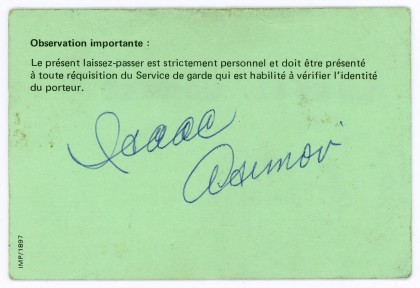 Observation importante :
Le présent laissez-passer est strictement personnel et doit être présenté
à toute réquisition du Service de garde qui est habilité à vérifier l'identité
du porteur.
Isaac
Asimov
IMP/1897